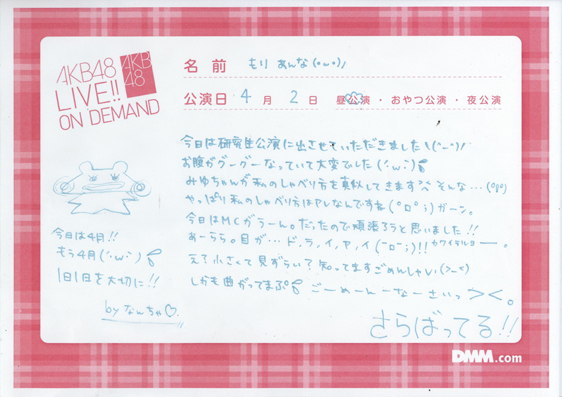 AKB48
LIVE!!
ON DEMAND
AKB
48
名前 もり あんな(•ω•)ノ
公演日 4月 2日 昼公演・おやつ公演・夜公演
今日は研究生公演に出させていただきました\(^-^)/
お腹がグーグーなっていて大変でした(´;ω;`)
みゆちゃんが私のしゃべり方を真似してきます そんな…
やっぱり私のしゃべり方はヤレなんですね(°□°;)ガーン。
今日はMCがうーん。だったので頑張ろうと思いました!!
あーらら。目が…ド,ラ,イ,ア,イ(ˉ□ˉ;)!!カワイテルヨー。
え?小さくて見ずらい?知ってますごめんしゃい(>_<)
しかも曲がってまぷ ごーめーんーなーさいっ ><。
さらばってる!!
今日は4月!!
もう4月(´;ω;`)
1日1日を大切に!!
by なんちゃ♡
DMM.com